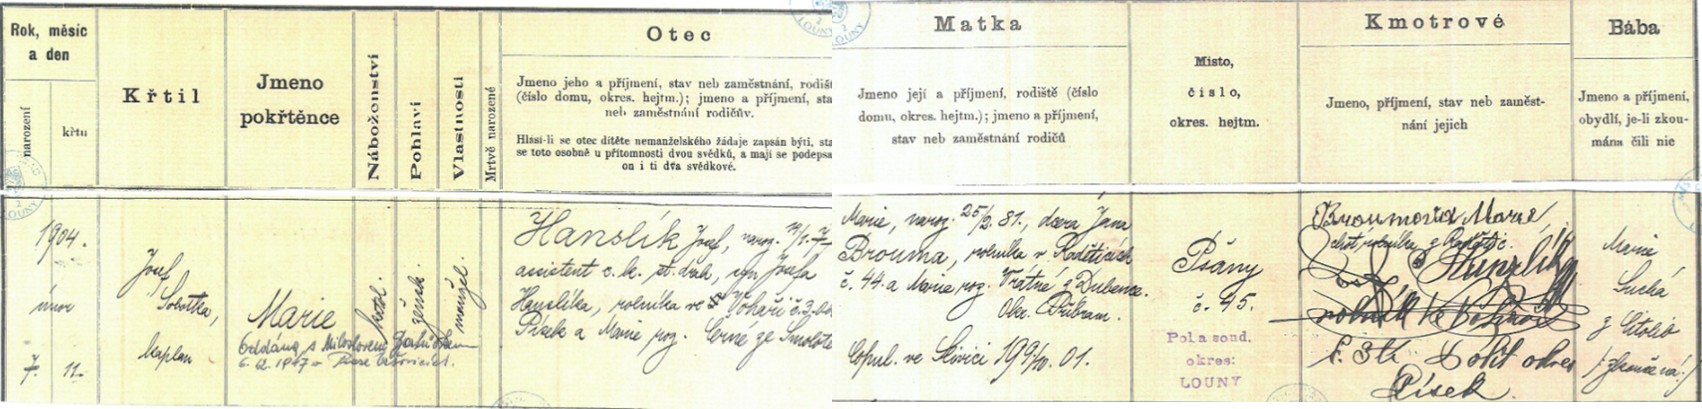 Rok, měsíc
a den
narození
křtu
Křtil
Jmeno
pokřtěnce
Náboženství
Pohlaví
Vlastnosti
Mrtvě narozené
Otec
Jmeno jeho a příjmení, stav neb zaměstnání, rodiš
(číslo domu, okres. hejtm.); jmeno a příjmení, sta
neb zaměstnání rodičův.
Hlásí-li se otec dítěte nemanželského žádaje zapsán býti, sta
se toto osobně u přítomnosti dvou svědků, a mají se podepsa
on i ti dva svědkové.
Matka
Jmeno její a příjmení, rodiště (číslo
domu, okres. hejtm.); jmeno a příjmení,
stav neb zaměstnání rodičů
Místo,
číslo,
okres. hejtm.
Kmotrové
Jmeno, příjmení, stav neb zaměst-
nání jejich
Bába
Jmeno a příjmení,
obydlí, je-li zkou-
mána čili nic
LOUNY
LOUNY
1904.
únor
7. 11.
Josef
Sobotka,
kaplan
Marie
Oddána s Miloslavem
katol.
žensk.
manžel.
Hanslík Josef, naroz.
assistent c. k. st. drah, syn Josefa
Hanslíka, rolníka ve č. 3.
Písek a Marie roz. Černé ze
Marie, naroz. 25/2. 81., dcera Jana
Brouma, rolníka v Raděticích
č. 44. a Marie roz. Vrátné z Dubence.
Okr. Příbram.
Copul. ve Slivici
Pšany
č. 45.
Pol. a soud.
okres:
LOUNY
Broumová Marie,
choť rolníka z Radětic.
Hanzlík
rolník
okres
Písek
Marie
Suchá
z Cítolib
/: zkoušená :/